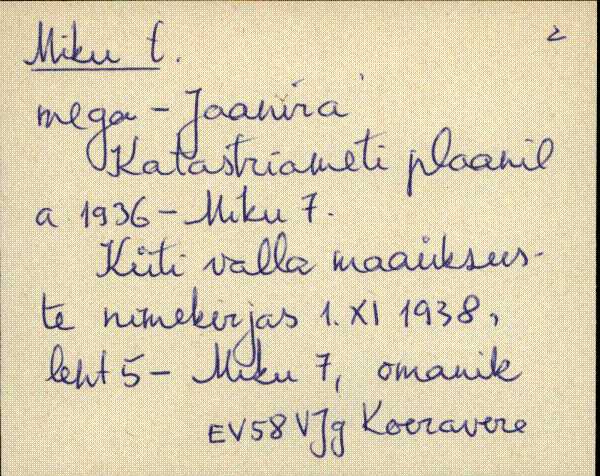 Miku t. 2
mega - Jaanira
Katastriameti plaanil
a 1936 - Miku 7.
Kiiti valla maaüksus-
te nimekirjas 1. XI 1938,
leht 5 - Miku 7, omanik
EV58 VJg Koeravere